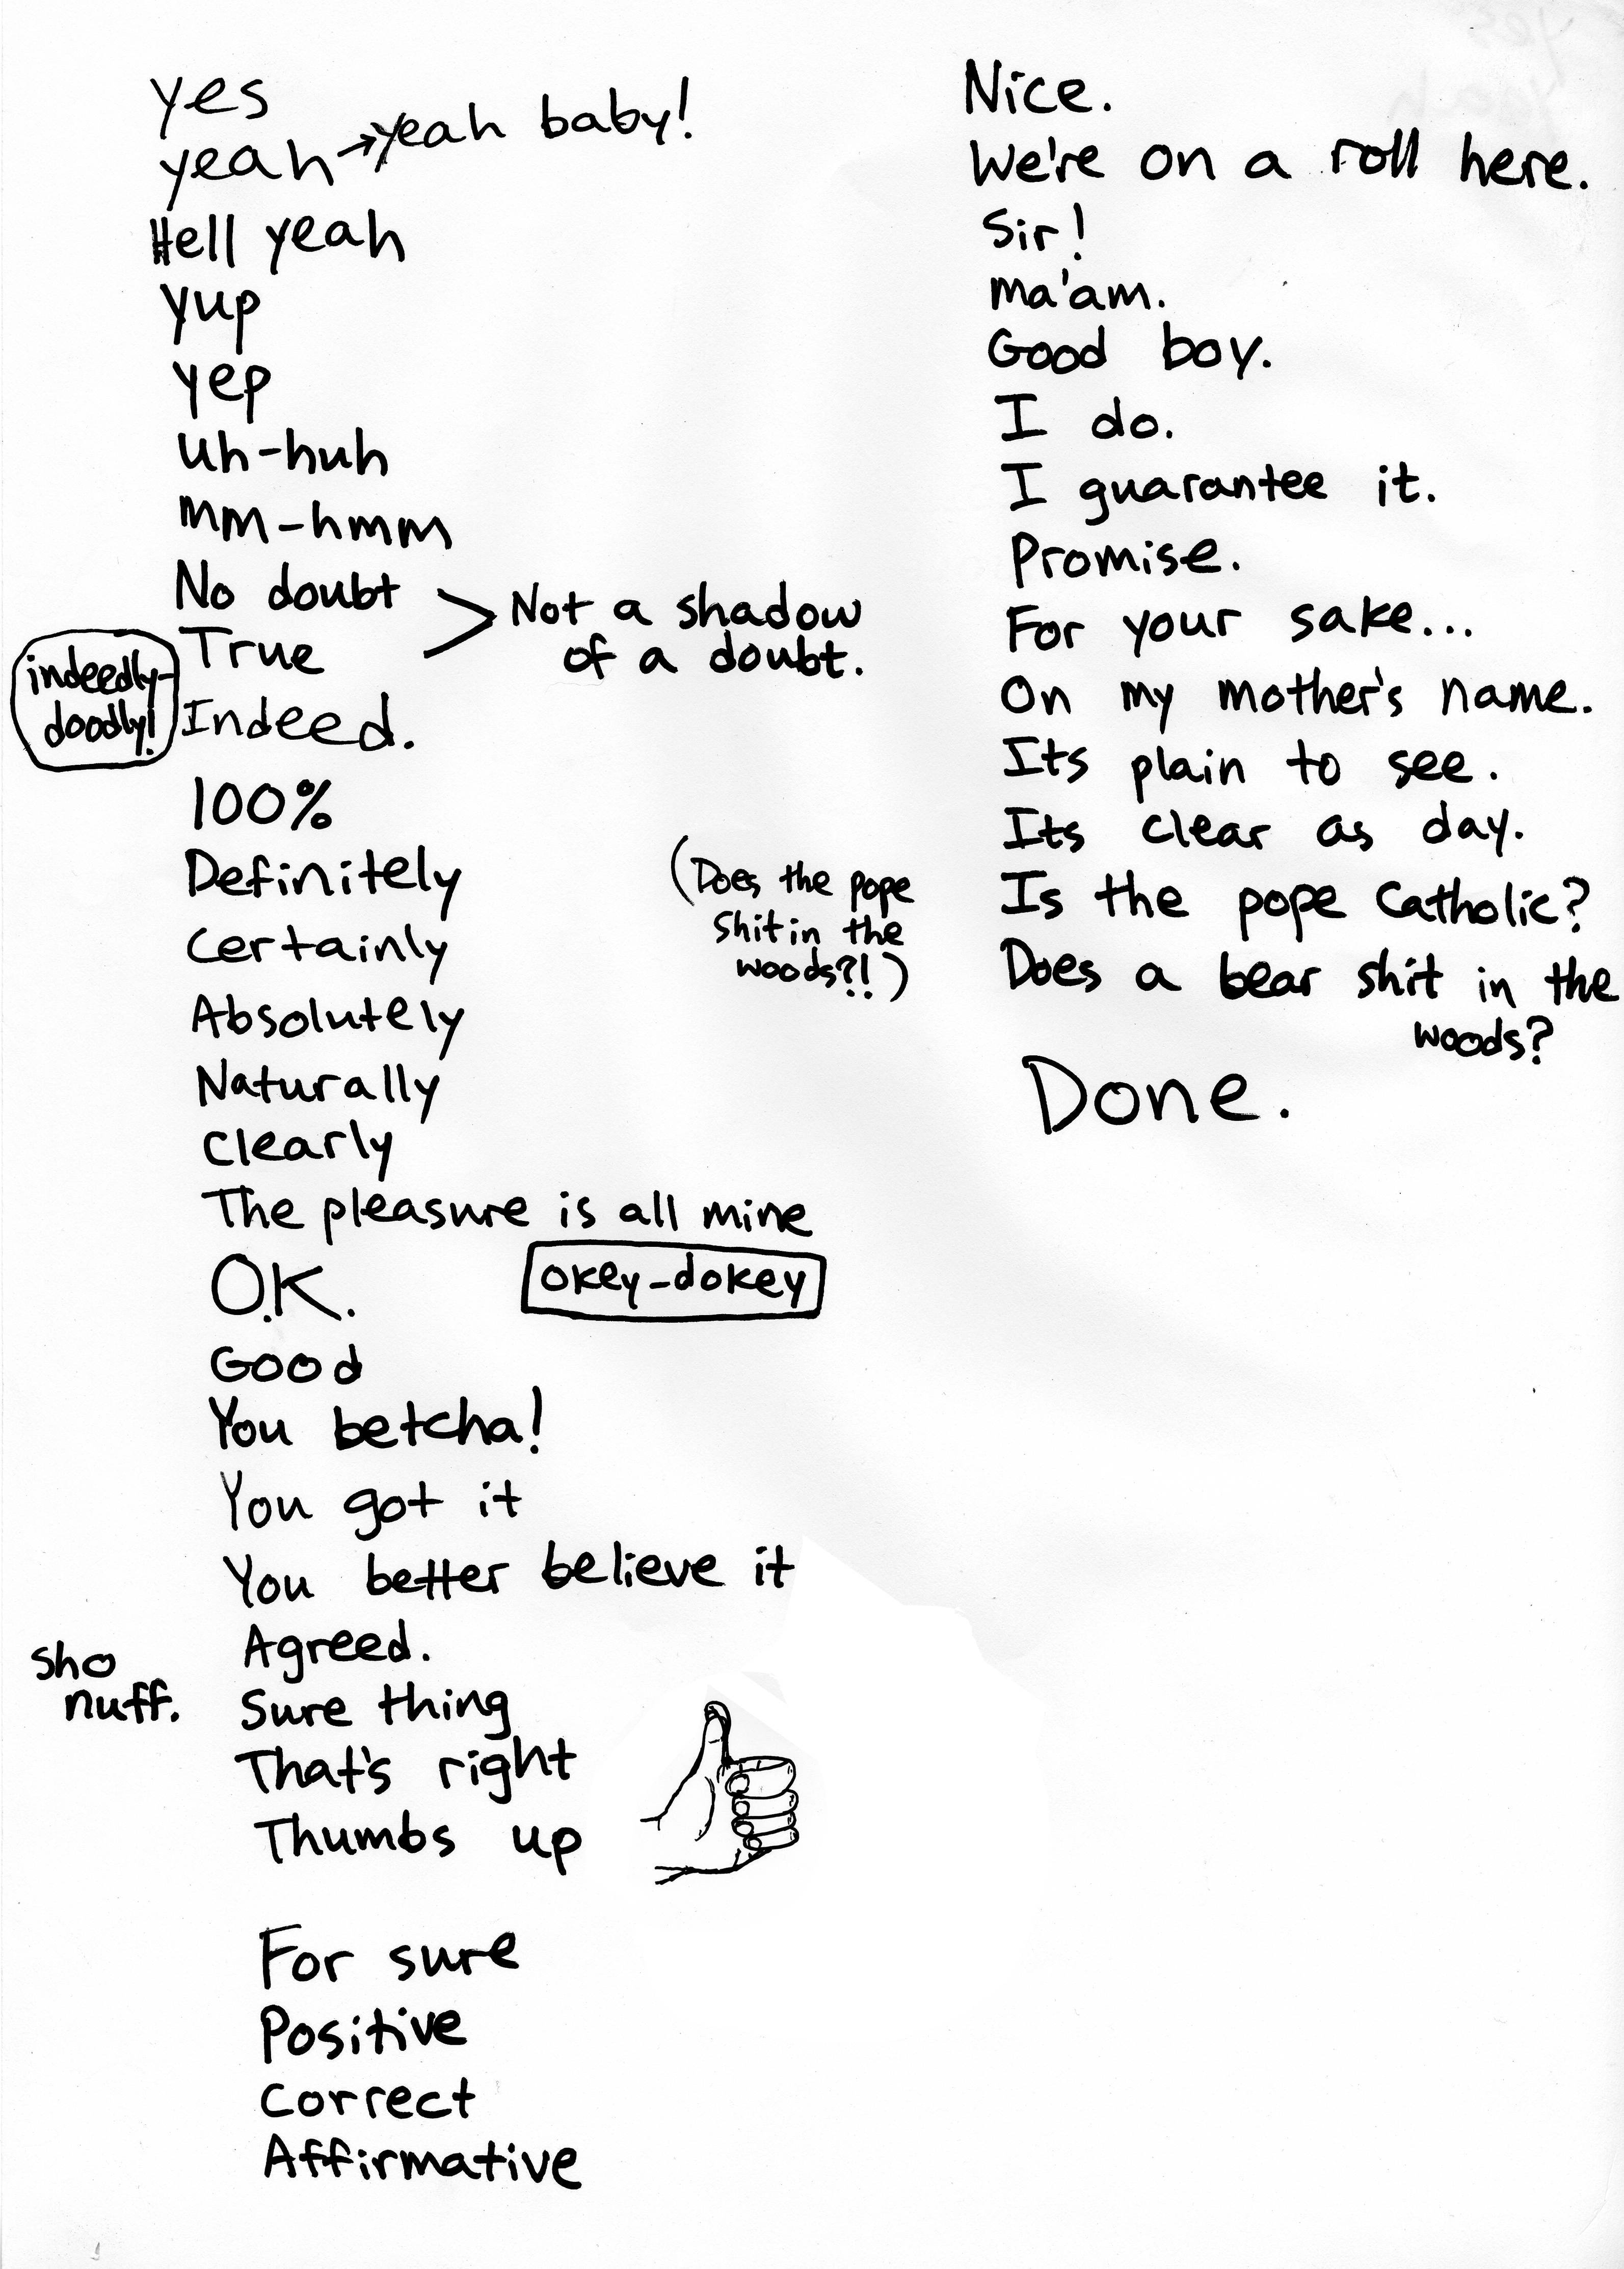 yes
yeah → yeah baby!
Hell yeah
yup
yep
uh-huh
mm-hmm
No doubt
True
> Not a shadow
of a doubt.
indeedly-
doodly!
Indeed.
100%
Definitely
Certainly
Absolutely
Naturally
Clearly
The pleasure is all mine
O.K.
okey-dokey
Good
You betcha!
You got it
You better believe it
Agreed.
sho
nuff.
Sure thing
That's right
Thumbs up
For sure
Positive
Correct
Affirmative
Nice.
We're on a roll here.
Sir!
Ma'am.
Good boy.
I do.
I guarantee it.
Promise.
For your sake...
On my mother's name.
Its plain to see.
Its clear as day.
Is the pope Catholic?
Does a bear shit in the
woods?
(Does the pope
shit in the
woods?!)
Done.